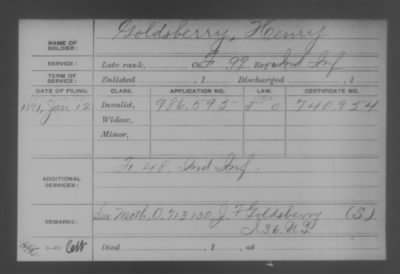 NAME OF SOLDIER: Goldsberry, Henry
SERVICE: Late rank, Co. F, 99 Reg't Ind Inf
TERM OF SERVICE: Enlisted , 1 Discharged , 1
DATE OF FILING. CLASS. APPLICATION NO. LAW. CERTIFICATE NO.
1891, Jan 12 Invalid, 986.595 740.954
Widow,
Minor,
ADDITIONAL SERVICES: 48 Ind Inf.
REMARKS: Moth, O. 713130, J. F Goldsberry (S)
36. N.S.
Died , 1 , at